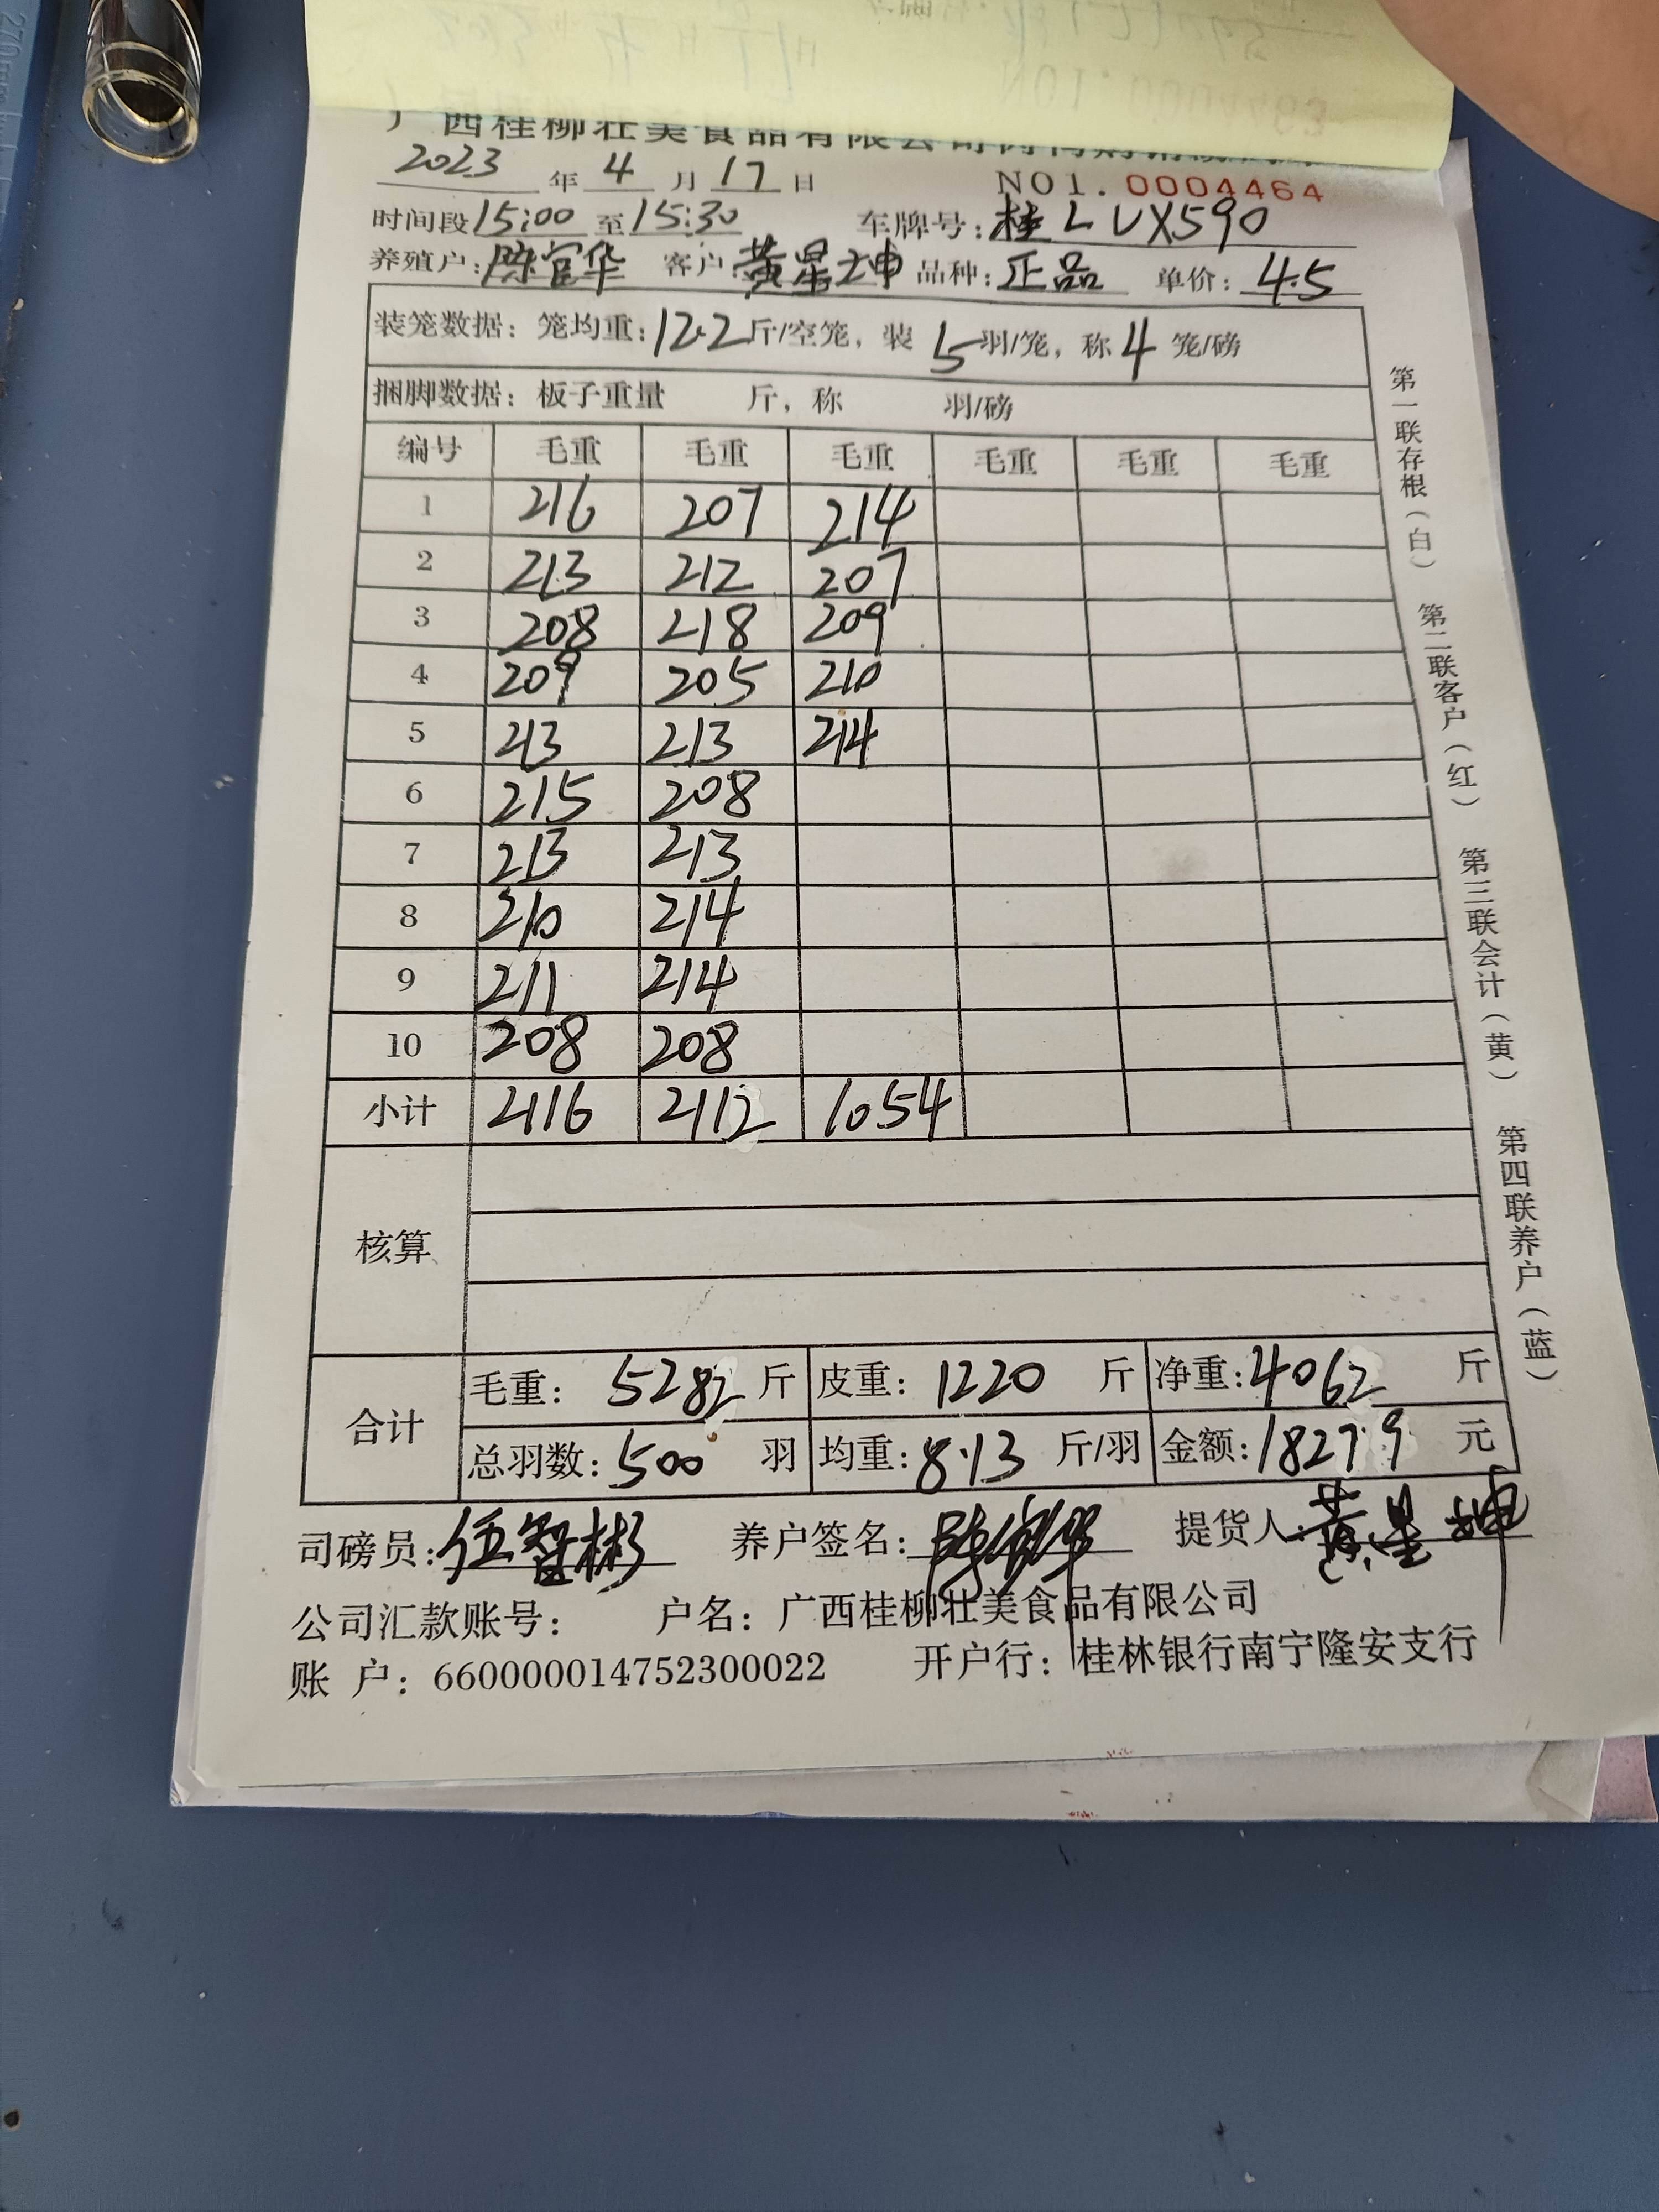 广西桂柳壮美食品有限公司
2023 年 4 月 17 日 NO1.0004464
时间段 15:00 至 15:30 车牌号: 桂L UX590
养殖户: 陈官华 客户: 黄星坤 品种: 正品 单价: 4.5
装笼数据: 笼均重: 12.2 斤/空笼, 装 5 羽/笼, 称 4 笼/磅
捆脚数据: 板子重量 斤, 称 羽/磅
编号 毛重 毛重 毛重 毛重 毛重 毛重
1 216 207 214
2 213 212 207
3 208 218 209
4 209 205 210
5 213 213 214
6 215 208
7 213 213
8 210 214
9 211 214
10 208 208
小计 2116 2112 1054
核算
合计 毛重: 5282 斤 皮重: 1220 斤 净重: 4062 斤
总羽数: 500 羽 均重: 8.13 斤/羽 金额: 18279 元
司磅员: 伍智彬 养户签名: 陈官华 提货人: 黄星坤
公司汇款账号: 户名: 广西桂柳壮美食品有限公司
账 户: 660000014752300022 开户行: 桂林银行南宁隆安支行
第一联存根(白) 第二联客户(红) 第三联会计(黄) 第四联养户(蓝)